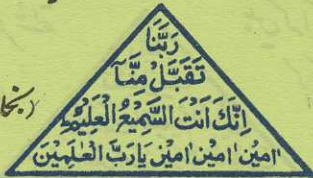 رَبَّنَا
تَقَبَّلْ مِنَّآ
اِنَّكَ اَنْتَ السَّمِيْعُ الْعَلِيْمُ
اٰمِيْن اٰمِيْن اٰمِيْن يَارَبَّ الْعٰلَمِيْن